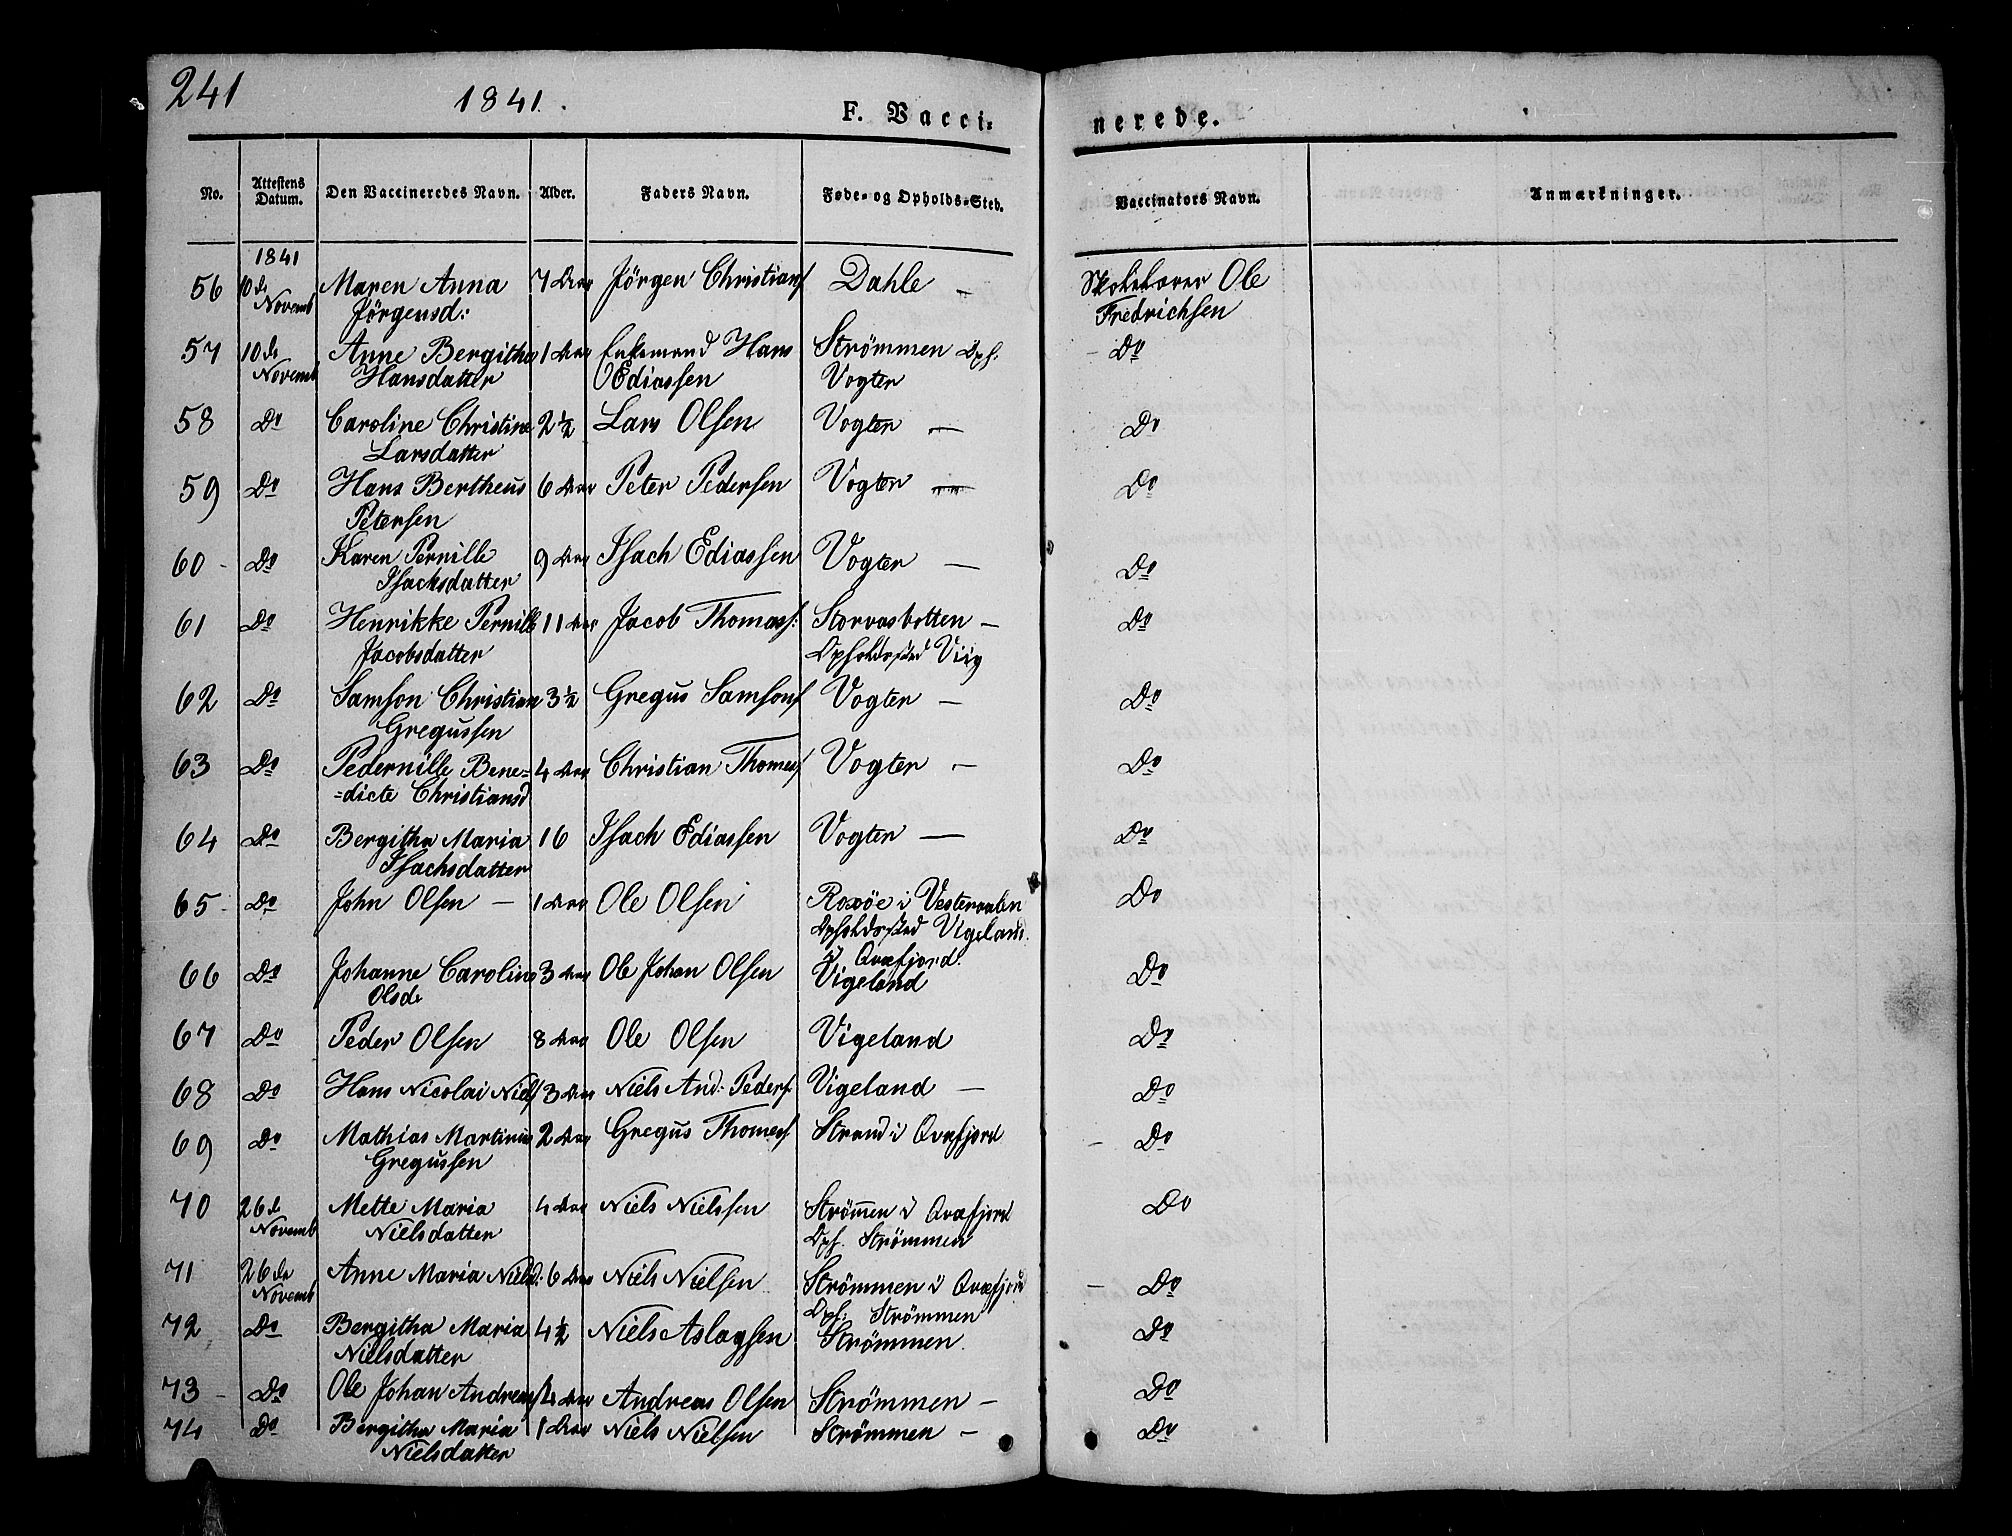 241
1841.
F. Vacci-
nerede.
No. Attestens Datum. Den Vaccineredes Navn. Alder. Faders Navn. Føde- og Opholds-Sted. Vaccinators Navn. Anmærkninger.
1841
56 10de Novemb Maren Anna 7 Aar Jörgen Christians Dahle – Skolelærer Ole
Jörgensd: Fredrichsen
57 10de Anne Bergitha 1 Aar Enkemand Hans Strömmen Oph: – Do
Novemb Hansdatter Ediassen Vogter
58 Do Caroline Christine 2½ Lars Olsen Vogter – Do
Larsdatter
59 Do Hans Bertheus 6 Aar Peter Pedersen Vogter – Do
Petersen
60 - Do Karen Pernille 9 Aar Isach Ediassen Vogter – Do
Isacksdatter
61 Do Henrikke Pernille 11 Aar Jacob Thomas: Storvasbotten – Do
Jacobsdatter Opholdssted Viig
62 Do Samson Christian 3½ Gregus Samsons Vogter – Do
Gregussen
63 Do Pedernille Bene= 4 Aar Christian Thomes Vogter – Do
=dicte Christiansd
64 Do Bergitha Maria 16 Isach Ediassen Vogter – Do
Isachsdatter
65 - Do John Olsen – 1 Aar Ole Olsen Roxöe i Vesteraalen Do
Opholdssted Vigeland
i Qvæfjord.
66 Do Johanne Caroline 3 Aar Ole Johan Olsen Vigeland Do
Olsdr
67 Do Peder Olsen 8 Aar Ole Olsen Vigeland Do
68 Do Hans Nicolai Niels 3 Aar Niels And: Peders. Vigeland – Do
69 Do Mathias Martinus 2 Aar Gregus Thomes Strand i Qvæfjord – Do
Gregussen
70 26de Mette Maria 4 Aar Niels Nielssen Strömen i Qvæfjord Do
Novemb Nielsdatter Oph. Strömmen
71 26de Anne Maria Nielsd: 6 Aar Niels Nielsen Strömmen i Qvæfjord – Do
Novemb Oph: Strömmen
72 Do Bergitha Maria 4½ Niels Aslagsen Strömmen. Do
Nielsdatter
73 - Do Ole Johan Andreas Aar Andreas Olsen Strömmen – Do
74 Do Bergitha Maria 1 Aar Niels Nielsen Strömmen – Do
Nielsdatter